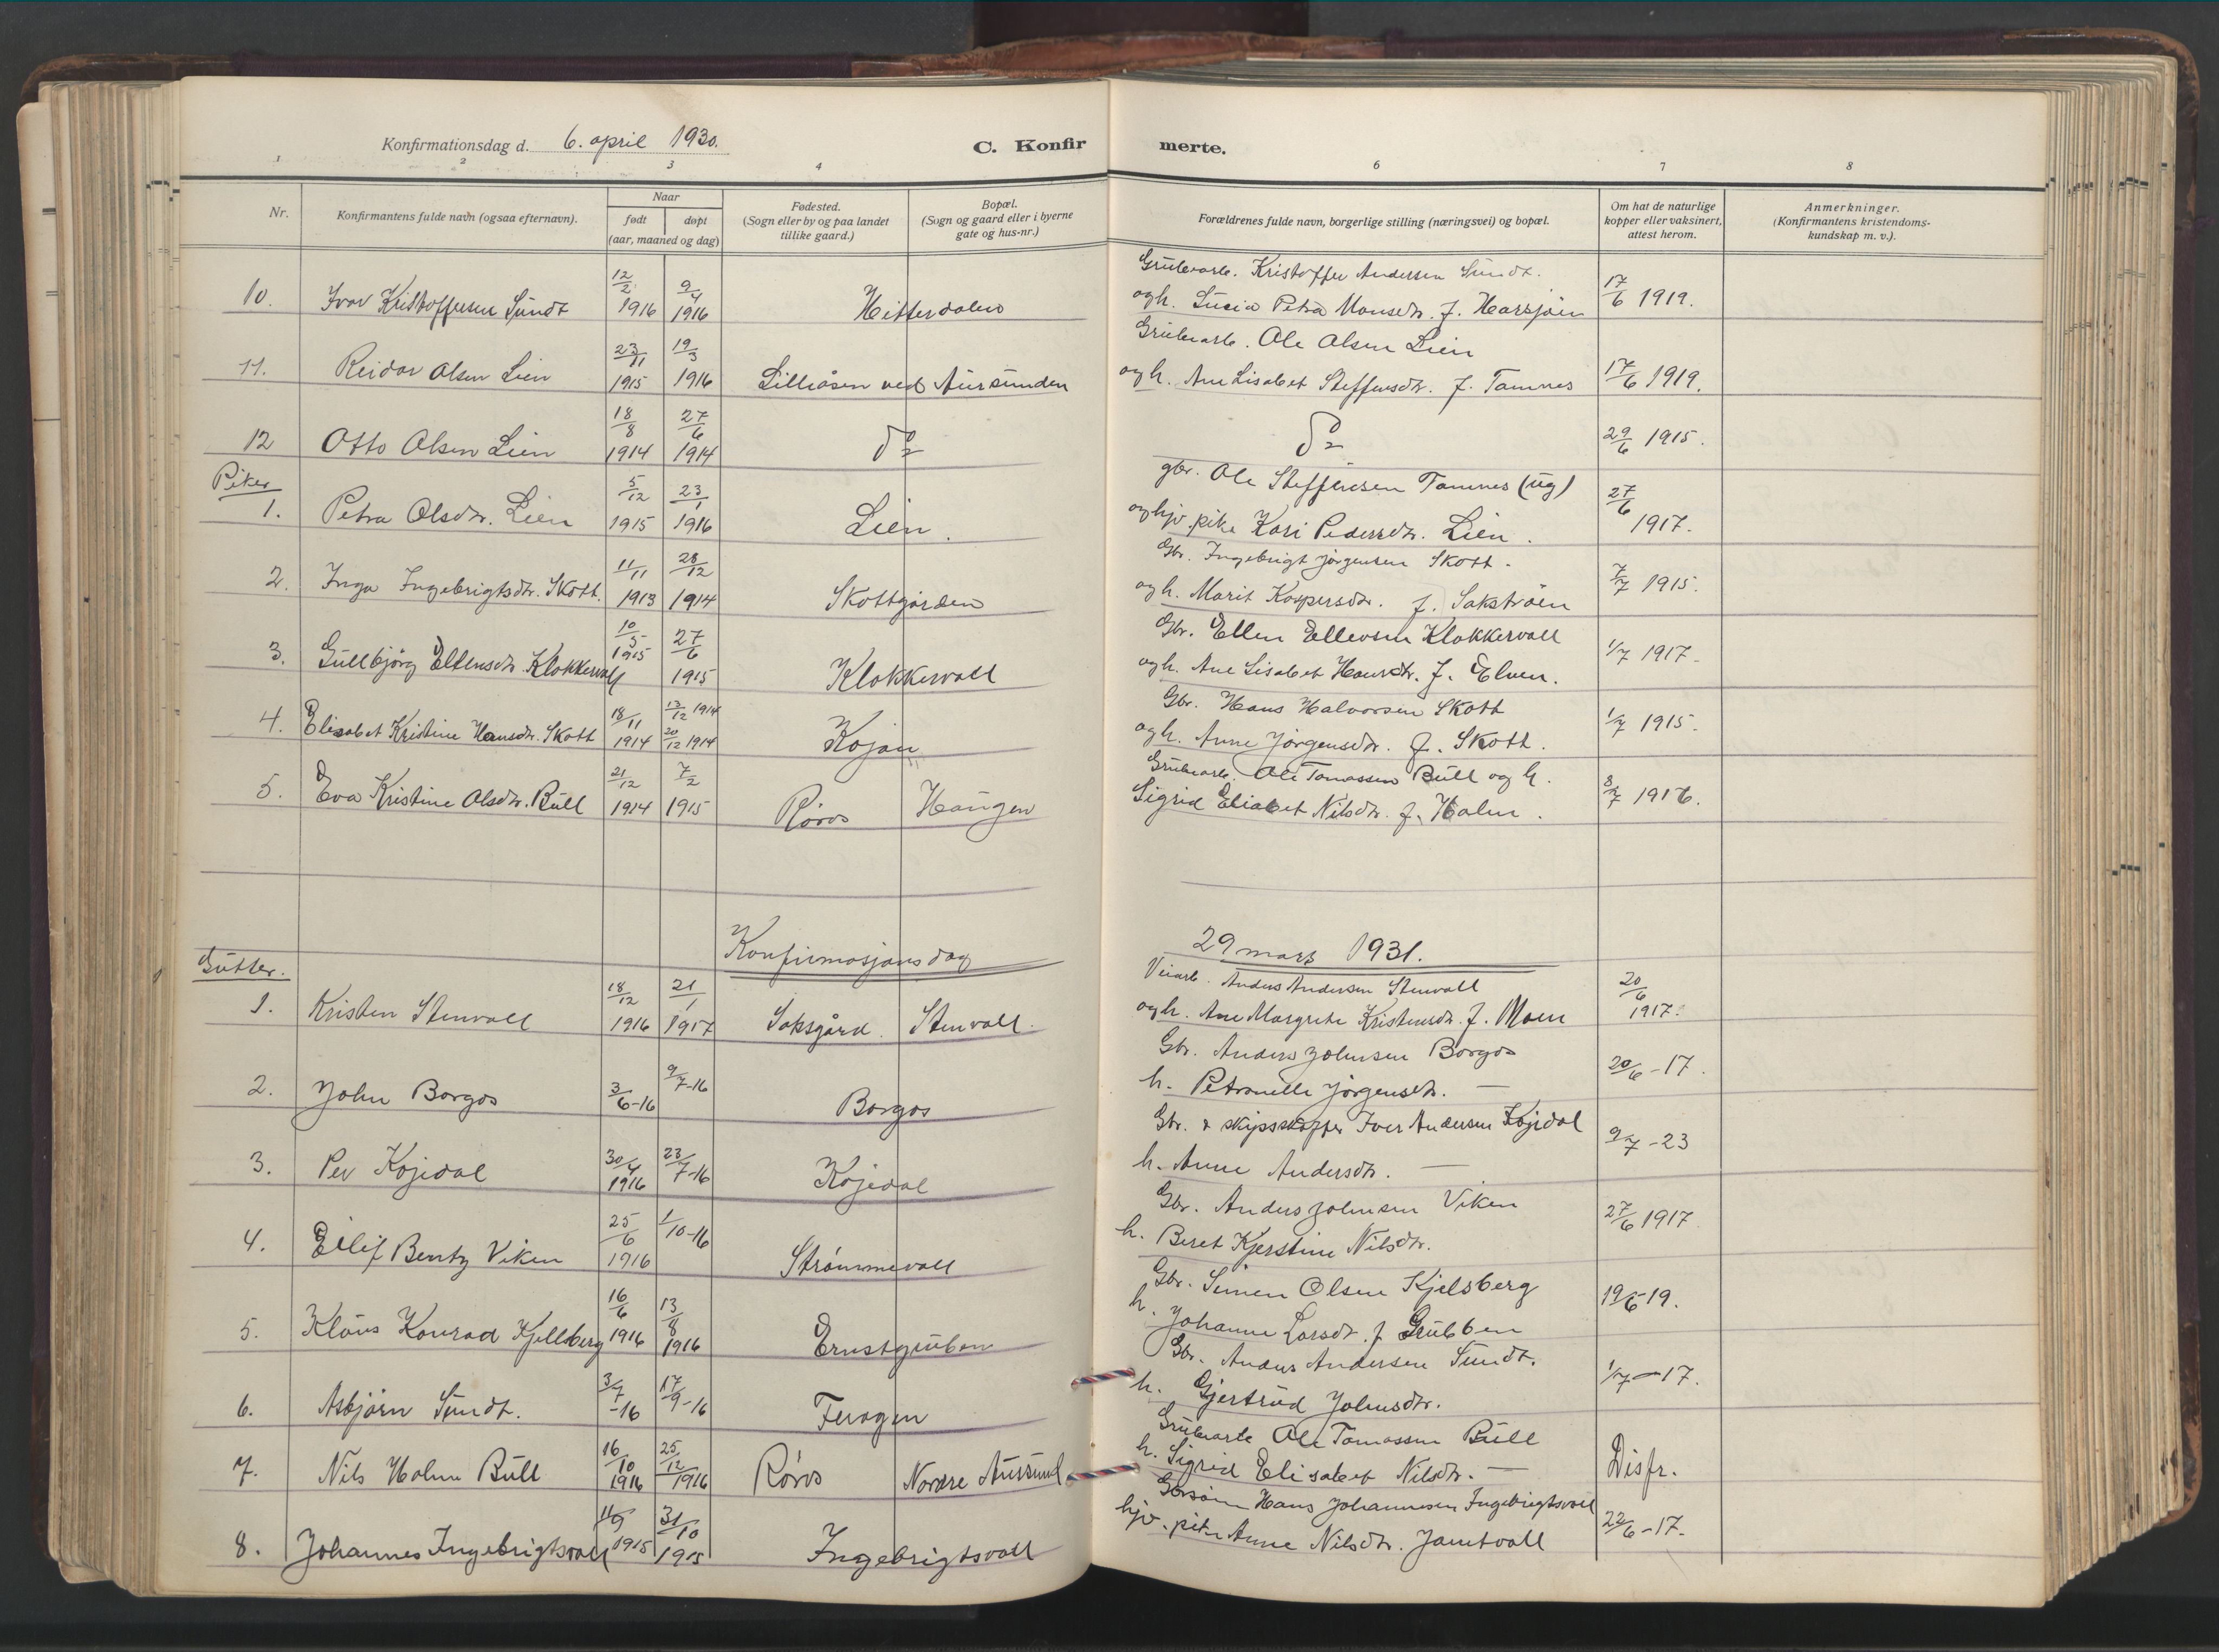 Konfirmationsdag d. 6. april 1930. C. Konfir merte.
1 2 3 4 6 7 8
Nr. Konfirmantens fulde navn (ogsaa efternavn). Naar født døpt (aar, maaned og dag) Fødested. (Sogn eller by og paa landet tillike gaard.) Bopæl. (Sogn og gaard eller i byerne gate og hus-nr.) Forældrenes fulde navn, borgerlige stilling (næringsvei) og bopæl. Om hat de naturlige kopper eller vaksinert, attest herom. Anmerkninger. (Konfirmantens kristendoms-kundskap m. v.).
10. Ivar Kristoffersen Sundt 12/2 1916 9/4 1916 Hitterdalen Grubearb. Kristoffer Andersen Sundt.
og h. Lucia Petra Monsdr. f. Harsjøen 17/6 1919.
11. Reidar Olsen Lien 23/11 1915 19/3 1916 Lilleåsen ved Aursunden Grubearb. Ole Olsen Lien
og h. Ane Lisabet Steffensdr. f. Tamnes 17/6 1919.
12 Otto Olsen Lien 18/8 1914 27/6 1914 do do 29/6 1915.
Piker
1. Petra Olsdr. Lien 5/12 1915 23/1 1916 Lien. gbr. Ole Steffensen Tamnes (ug)
og hjv. pike Kari Pedersdr. Lien. 27/6 1917.
2. Inga Ingebrigtsdr. Skott. 11/11 1913 28/12 1914 Skottgården Gbr. Ingebrigt Jørgensen Skott.
og h. Marit Kaspersdr. f. Sakstrøen 7/7 1915.
3. Gullbjørg Ellensdr. Klokkervoll 10/5 1915 27/6 1915 Klokkervoll Gbr. Ellen Ellevsen Klokkervoll
og h. Ane Lisabet Hansdr. f. Elven. 1/7 1917.
4. Elisabet Kristine Hansdr. Skott 18/11 1914 13/12 1914 20/12 1914 Kojan Gbr. Hans Halvorsen Skott
og h. Anne Jørgensdr. f. Skott. 1/7 1915.
5. Eva Kristine Olsdr. Bull 21/12 1914 7/2 1915 Røros Haugen Grubearb. Ole Tomassen Bull og h.
Sigrid Elisabet Nilsdr. f. Holm. 8/7 1916.
Konfirmasjonsdag 29 mars 1931.
Gutter.
1. Kristen Stenvoll 18/12 1916 21/1 1917 Saksgård. Stenvoll. Veiarb. Anders Andersen Stenvoll
og h. Ane Margrete Kristensdr. f. Moen 20/6 1917.
2. John Borgos 3/6-16 9/7-16 Borgos Gbr. Anders Johnsen Borgos
h. Petronelle Jørgensdr. — 20/6-17.
3. Per Kojedal 30/4 1916 23/7-16 Kojedal Gbr. & skysskaffer Iver Andersen Kojedal
h. Anne Andersdr. — 9/7-23
4. Eilif Bentz Viken 25/6 1916 1/10-16 Strømmevoll Gbr. Anders Johnsen Viken
h. Beret Kjerstine Nilsdr. 27/6 1917.
5. Klaus Konrad Kjellberg 16/6 1916 13/8 1916 Ernstgruben Gbr. Simen Olsen Kjelsberg
h. Johanne Larsdr. f Grubben 19/6-19.
6. Asbjørn Sundt. 3/7-16 17/9-16 Feragen Gbr. Anders Andersen Sundt.
h. Gjertrud Johnsdr. 1/7-17.
7. Nils Holm Bull 16/10 1916 25/12 1916 Røros Nordre Aursund Grubearb Ole Tomassen Bull
h. Sigrid Elisabet Nilsdr. — Disfr.
8. Johannes Ingebrigtsvoll 11/9 1915 31/10 1915 Ingebrigtsvoll Hans Johannesen Ingebrigtsvoll
hjv. pike Anne Nilsdr. Jamtvoll 22/6-17.